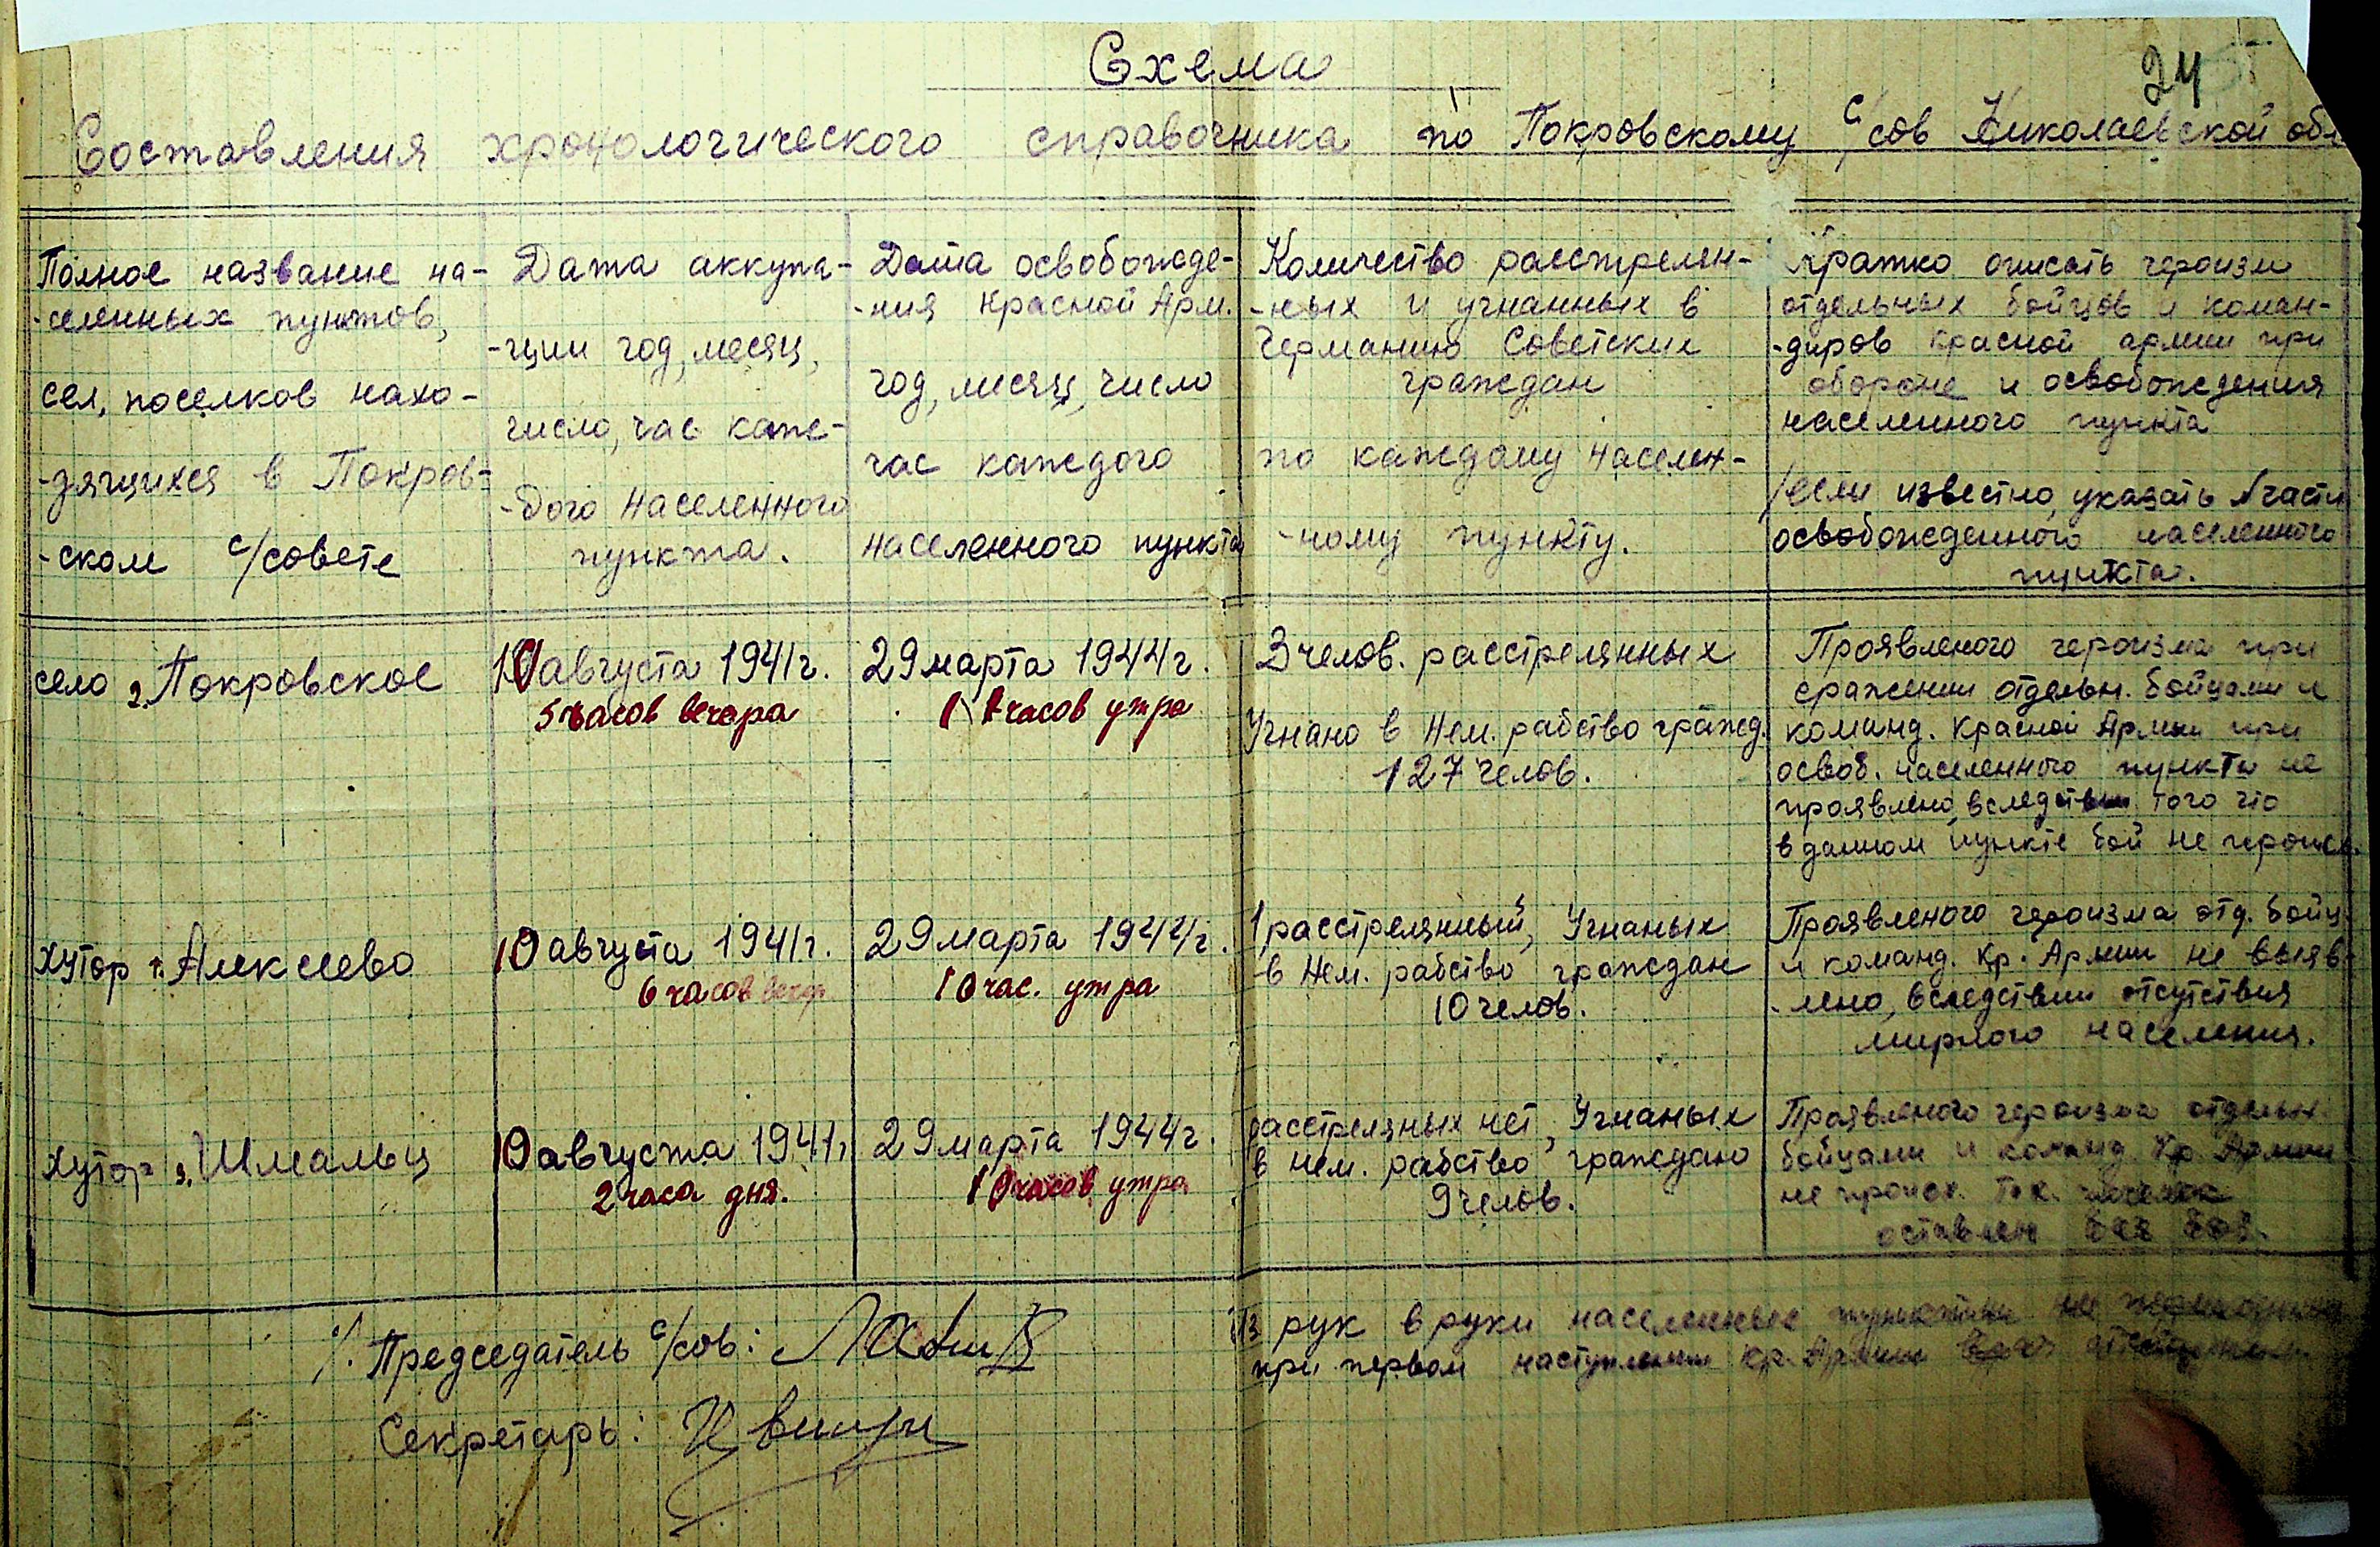 24
Схема
Составления хронологического справочника по Покровскому с/сов Николаевской обл
Полное название на-
-селенных пунктов,
сел, поселков нахо-
-дящихся в Покров-
-ском с/совете
Дата аккупа-
-ции год, месяц,
число, час каж-
-дого населенного
пункта.
Дата освобожде-
-ния Красной Арм.
год, месяц, число
час каждого
населенного пункта
Количество расстрелен-
-ных и угнанных в
Германию Советских
граждан
по каждому населен-
-ному пункту.
Кратко описать героизм
отдельных бойцов и коман-
-диров Красной армии при
обороне и освобождения
населенного пункта
/если известно, указать части
освобожденного населенного
пункта.
село Покровское
10 августа 1941 г.
5 часов вечера
29 марта 1944 г.
часов утра
3 челов. расстрелянных
Угнано в Нем. рабство гражд.
127 челов.
Проявленого героизма при
сражении отдельн. бойцами и
команд. Красной Армии при
освоб. населенного пункта не
проявлено, вследствии того что
в данном пункте бой не
хутор Алексеево
10 августа 1941 г.
6 часов вечер
29 марта 1944 г.
10 час. утра
1 расстрелянный, Угнаных
в Нем. рабство граждан
10 челов.
Проявленого героизма отд. бойц.
и команд. Кр. Армии не выяв-
-лено, вследствии отсутствия
мирного населения.
хутор Шмальц
10 августа 1941 г
2 часа дня.
29 марта 1944 г.
10 часов утра
расстреляных нет, Угнаных
в нем. рабство граждано
9 челов.
Проявленого героизма отдельн.
бойцами и команд. Кр. Армии
не т.к.
оставлен без боя.
Председатель с/сов:
Секретарь:
Из рук в руки населенные пункты не
при первом наступлении Кр. Армии враг